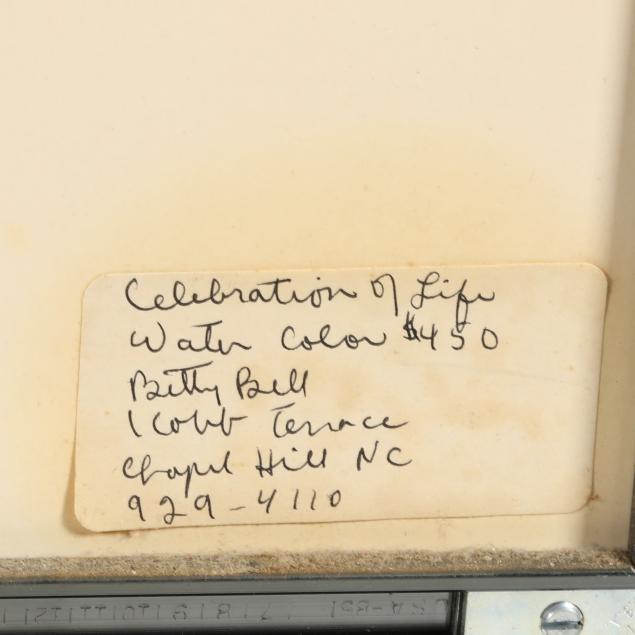 Celebration of Life
Water Color $450
Betty Bell
1 Cobb Terrace
Chapel Hill NC
929-4110